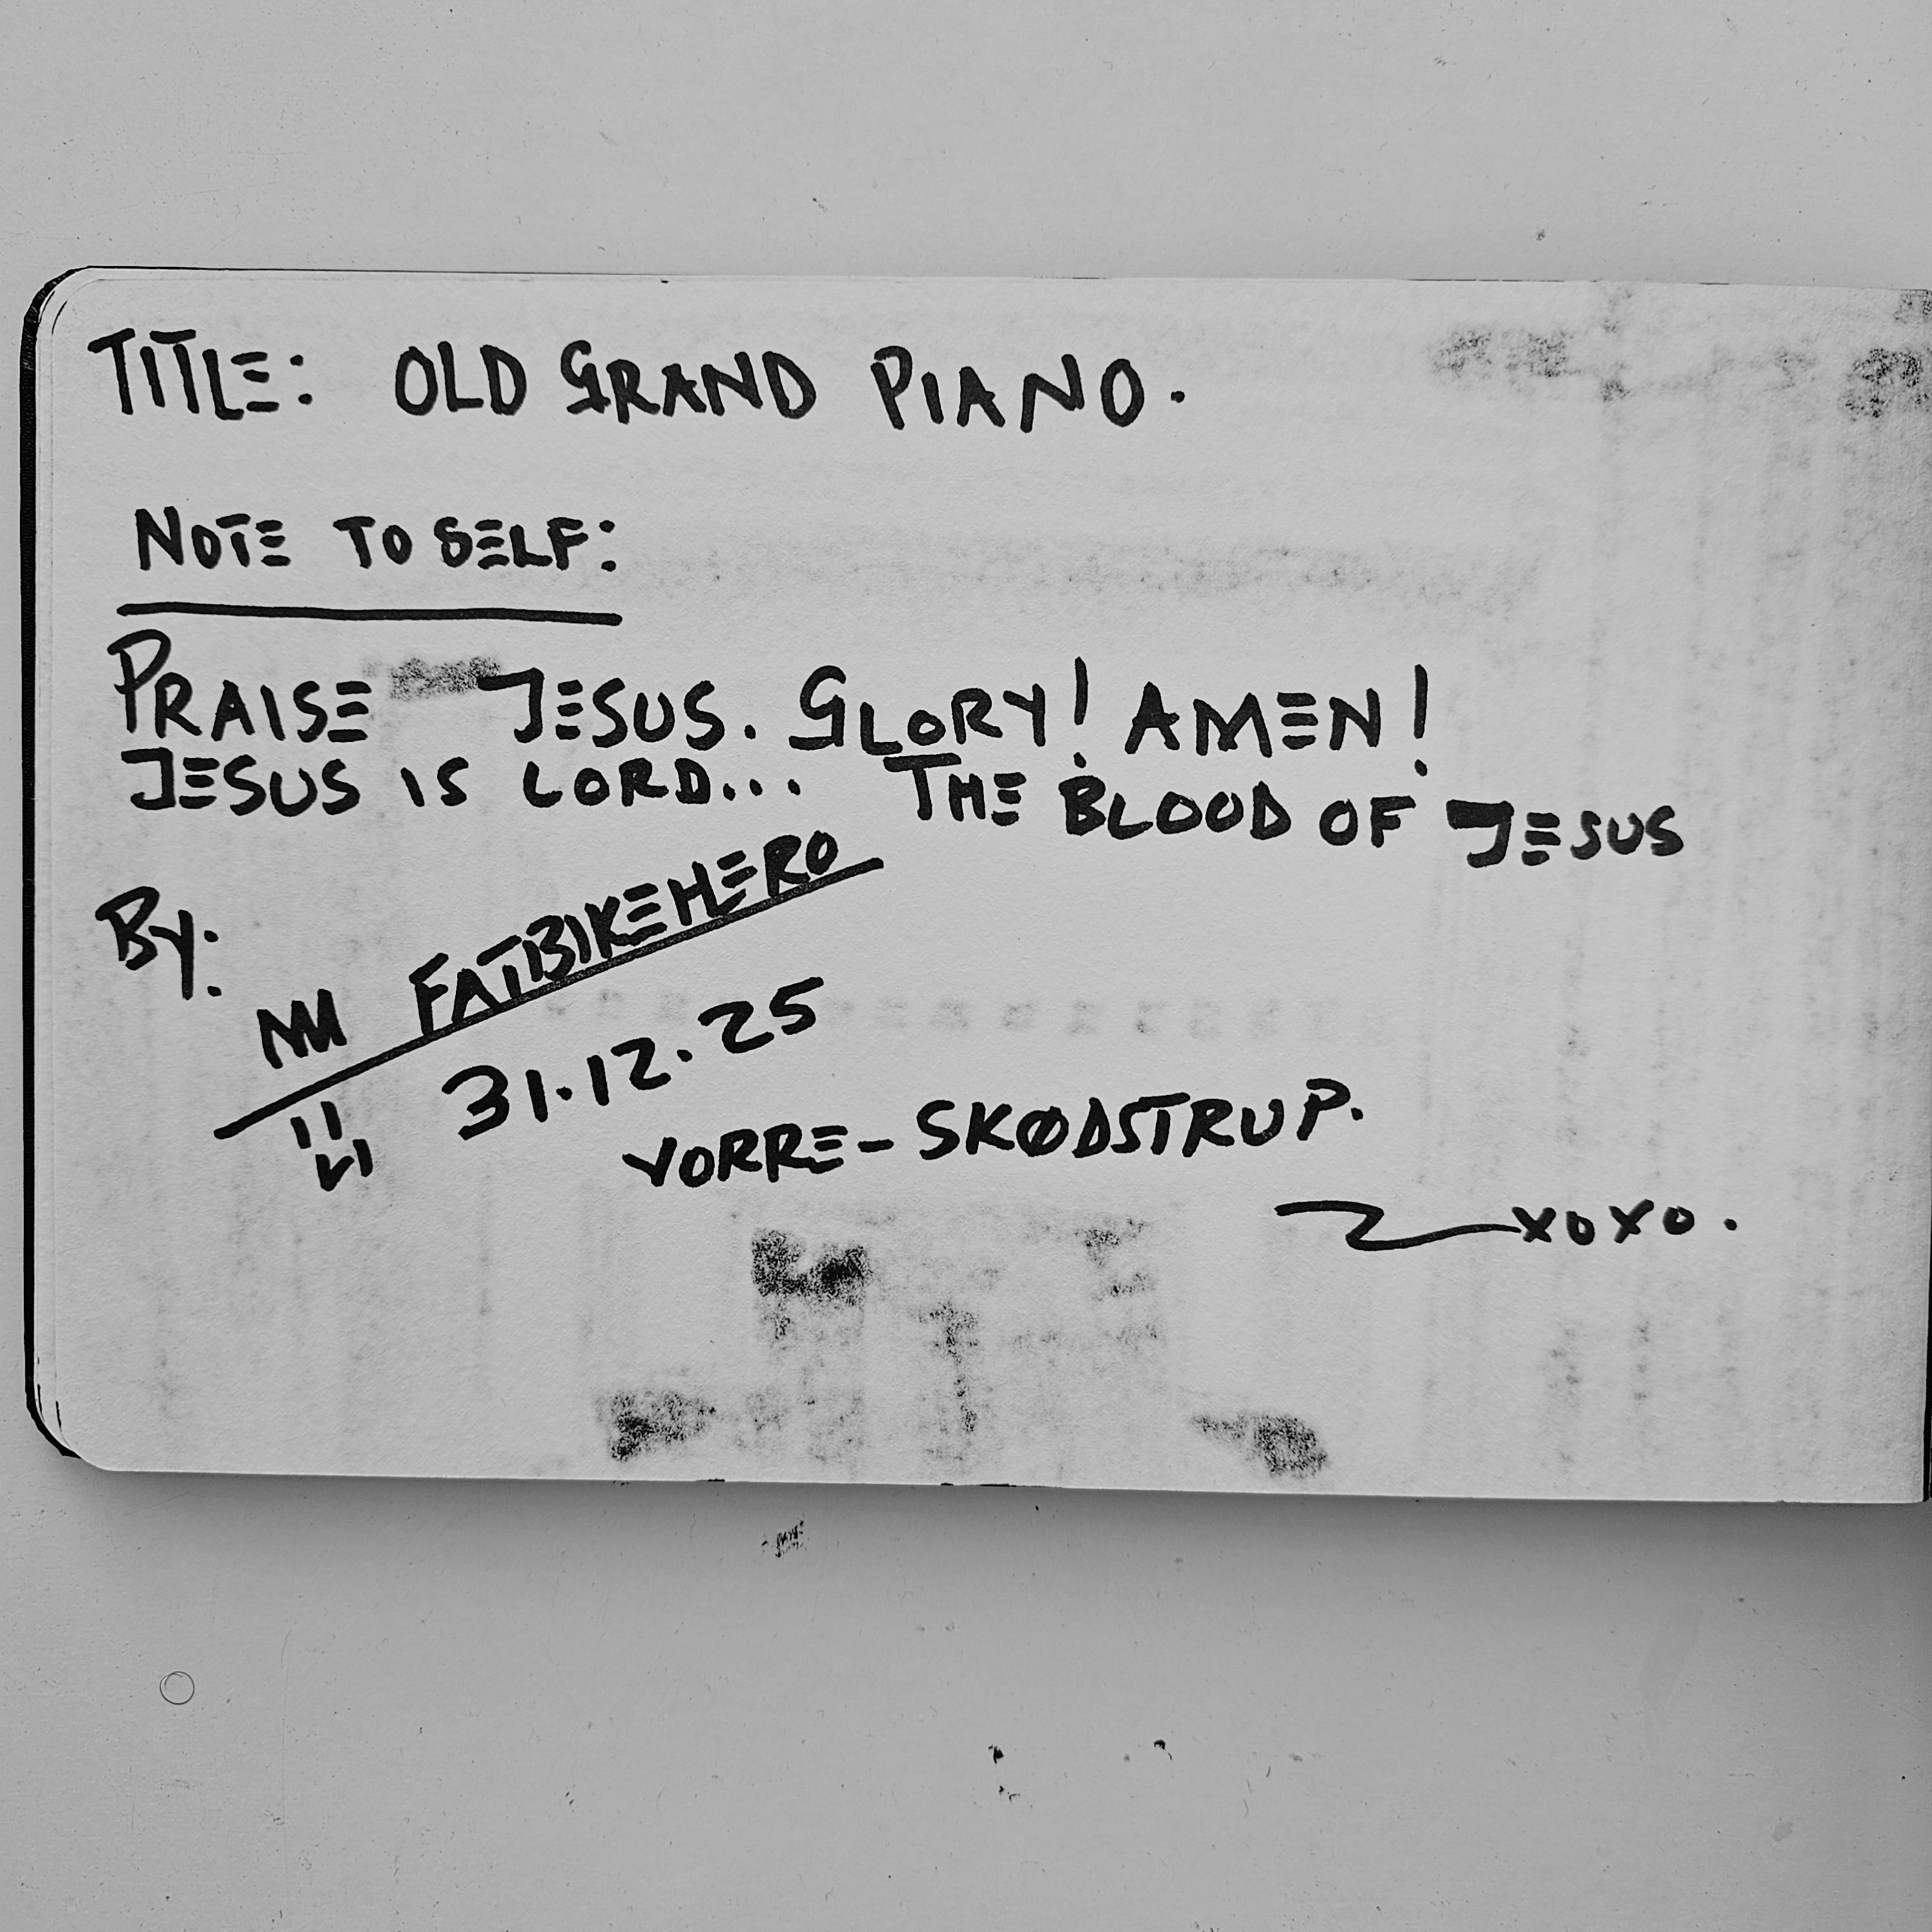 TITLE: OLD GRAND PIANO.
NOTE TO SELF:
PRAISE JESUS. GLORY! AMEN!
JESUS IS LORD... THE BLOOD OF JESUS
By:
FATBIKEHERO
31.12.25
VORRE-SKØDSTRUP.
xoxo.